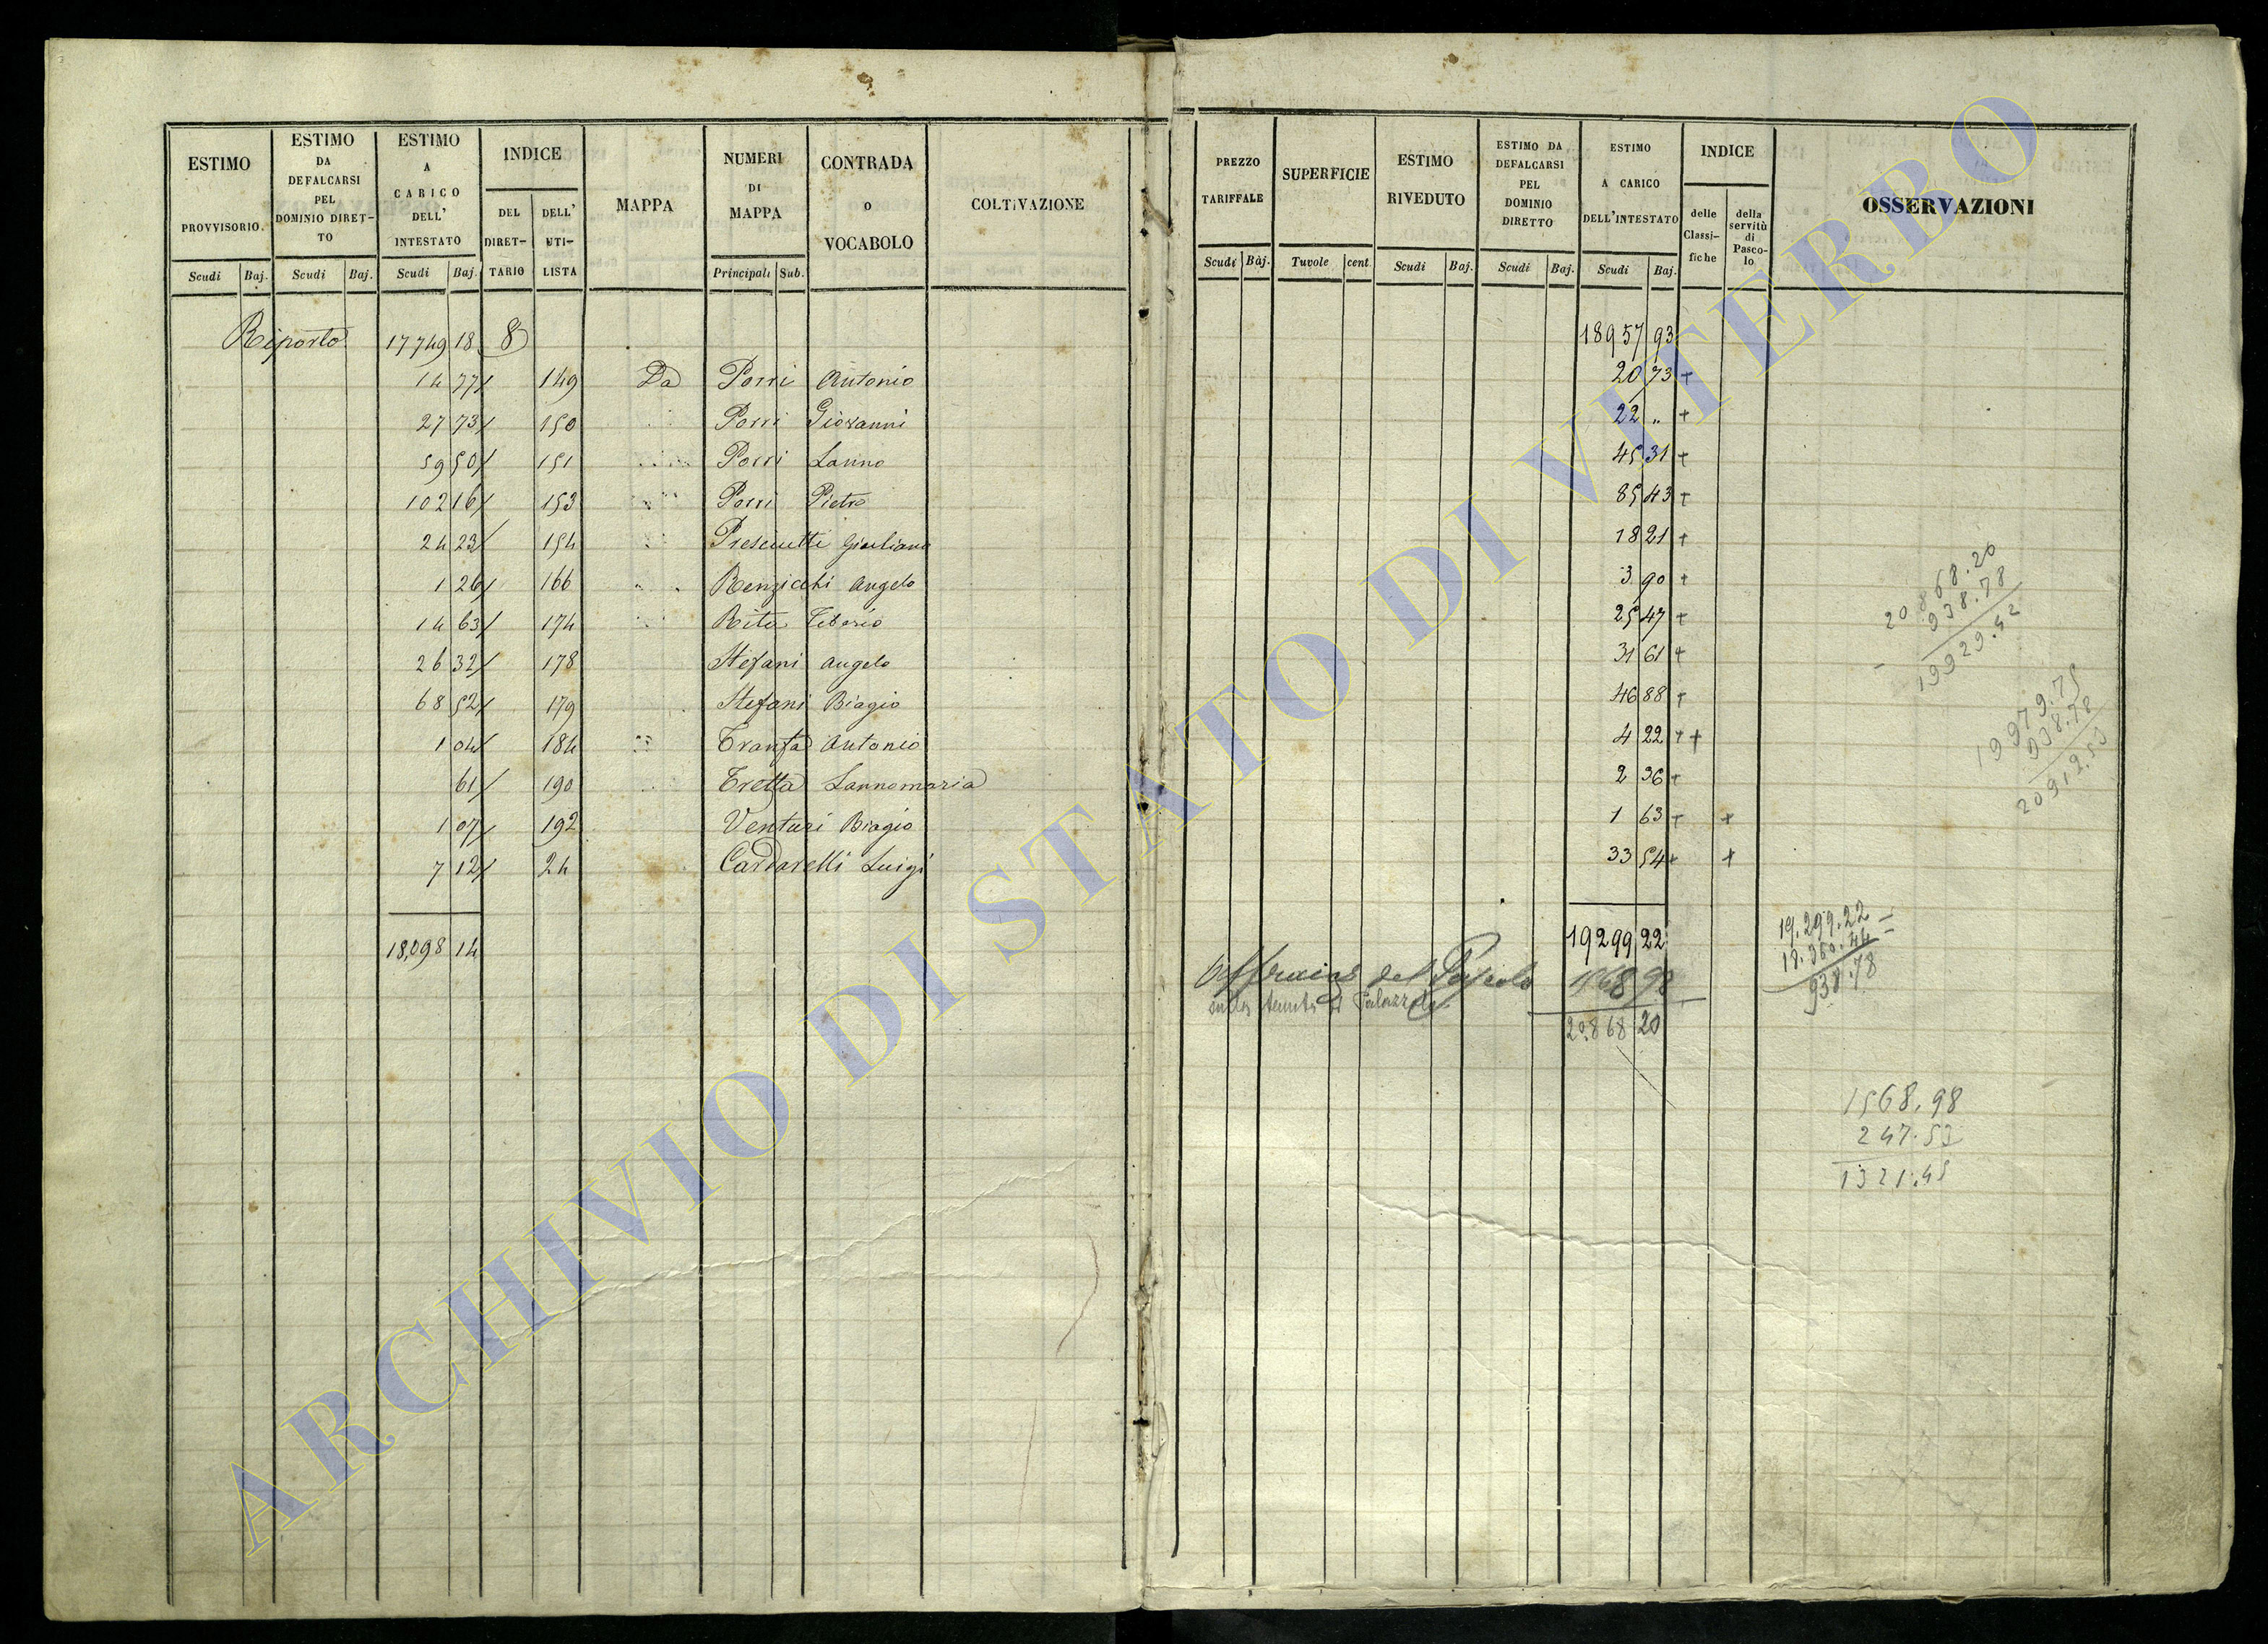 ESTIMO PROVVISORIO.
Scudi Baj.
ESTIMO DA DEFALCARSI PEL DOMINIO DIRET-TO
Scudi Baj.
ESTIMO A CARICO DELL' INTESTATO
Scudi Baj.
INDICE
DEL DIRET-TARIO
DELL' UTI-LISTA
MAPPA
NUMERI DI MAPPA
Principali Sub.
CONTRADA o VOCABOLO
COLTIVAZIONE
Riporto 17749 18 8
14 77 149 Da Porri Antonio
27 73 150 Porri Giovanni
59 50 151 Porri Sanno
102 16 153 Porri Pietro
24 23 154 Presciutti Giuliano
1 26 166 Renzicchi Angelo
14 63 174 Rita Tiberio
26 32 178 Stefani Angelo
68 52 179 Stefani Biagio
1 04 184 Tranfa Antonio
61 190 Tretta Sannomaria
1 07 192 Venturi Biagio
7 12 24 Cardarelli Luigi
18,098 14
PREZZO TARIFFALE
Scudi Baj.
SUPERFICIE
Tavole cent.
ESTIMO RIVEDUTO
Scudi Baj.
ESTIMO DA DEFALCARSI PEL DOMINIO DIRETTO
Scudi Baj.
ESTIMO A CARICO DELL'INTESTATO
Scudi Baj.
INDICE
delle Classi-fiche
della servitù di Pasco-lo
OSSERVAZIONI
18957 93
20 73 +
22 „ +
45 31 +
85 43 +
18 21 +
3 90 +
25 47 +
31 61 +
46 88 +
4 22 + +
2 36 +
1 63 + +
33 54 + +
19299 22
del Pascolo 1568 98
20.868 20
20868.20
938.78
19929.42
19979.75
938.78
20912.53
19.299.22
18.360.44
938.78
1568.98
247.53
1321.45
ARCHIVIO DI STATO DI VITERBO